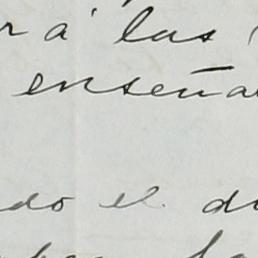 rá las
enseña
do el di